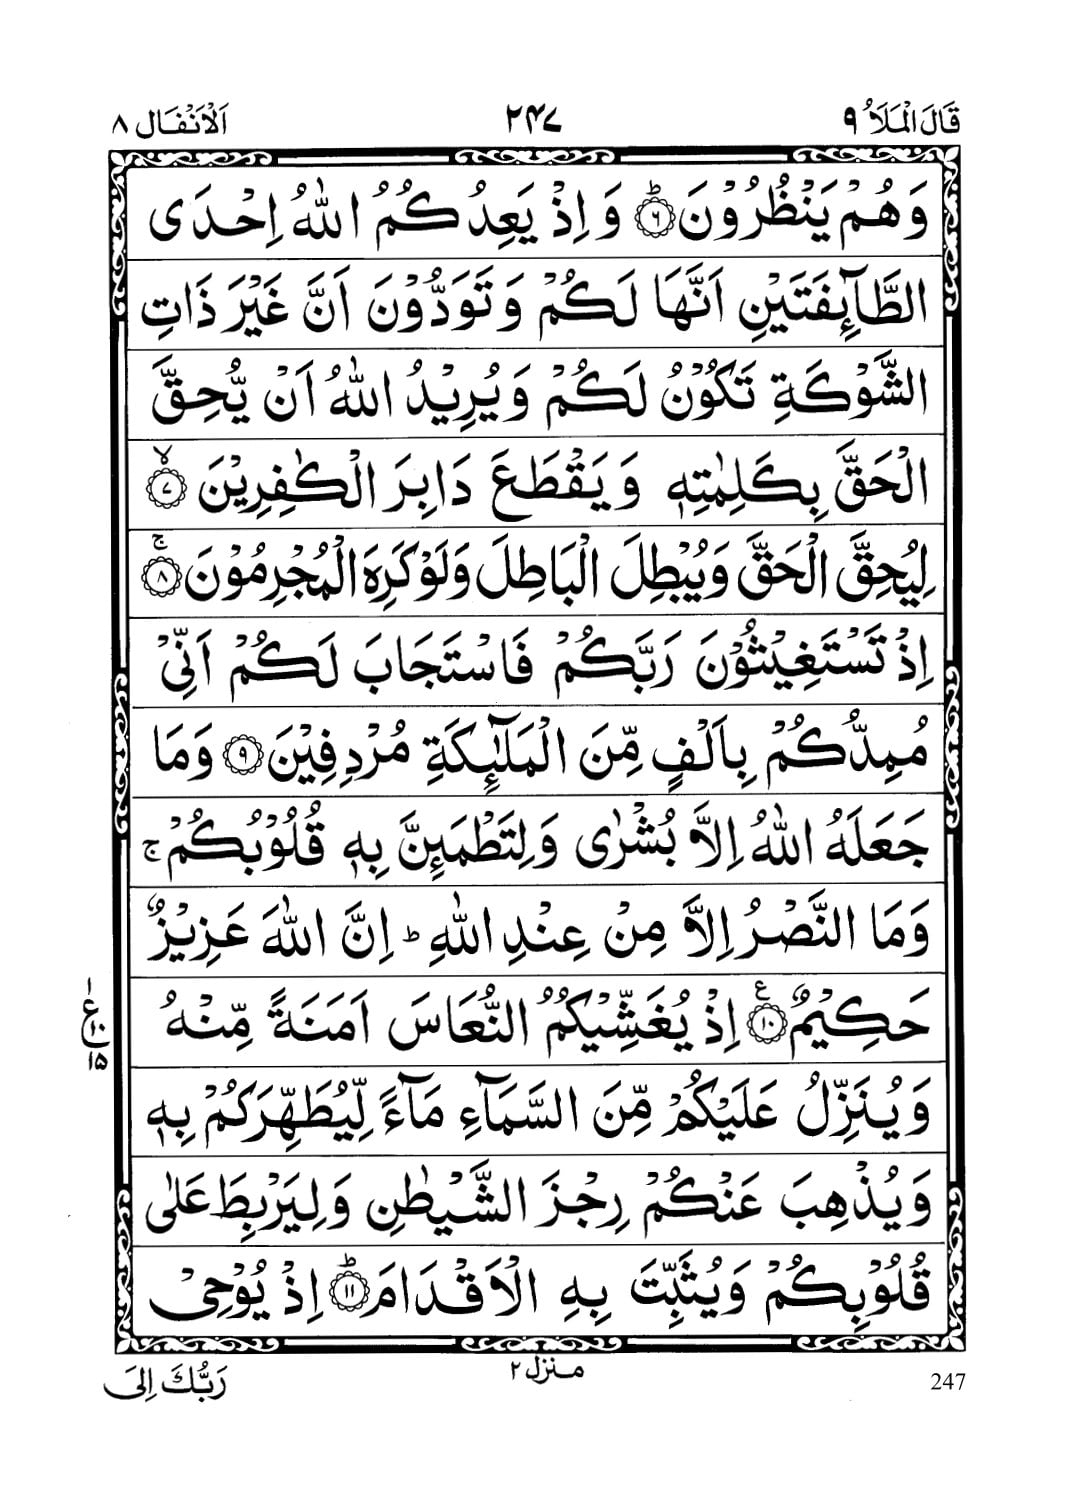 قَالَ الْمَلَاُ ٩ ٢٤٧ اَلْاَنْفَال ٨
وَهُمْ يَنْظُرُوْنَ ؕ﴿٦﴾ وَاِذْ يَعِدُكُمُ اللّٰهُ اِحْدَى
الطَّآئِفَتَيْنِ اَنَّهَا لَكُمْ وَتَوَدُّوْنَ اَنَّ غَيْرَ ذَاتِ
الشَّوْكَةِ تَكُوْنُ لَكُمْ وَيُرِيْدُ اللّٰهُ اَنْ يُّحِقَّ
الْحَقَّ بِكَلِمٰتِهٖ وَيَقْطَعَ دَابِرَ الْكٰفِرِيْنَ ۙ﴿٧﴾
لِيُحِقَّ الْحَقَّ وَيُبْطِلَ الْبَاطِلَ وَلَوْ كَرِهَ الْمُجْرِمُوْنَ ۚ﴿٨﴾
اِذْ تَسْتَغِيْثُوْنَ رَبَّكُمْ فَاسْتَجَابَ لَكُمْ اَنِّىْ
مُمِدُّكُمْ بِاَلْفٍ مِّنَ الْمَلٰٓئِكَةِ مُرْدِفِيْنَ ﴿٩﴾ وَمَا
جَعَلَهُ اللّٰهُ اِلَّا بُشْرٰى وَلِتَطْمَئِنَّ بِهٖ قُلُوْبُكُمْ ۚ
وَمَا النَّصْرُ اِلَّا مِنْ عِنْدِ اللّٰهِ ؕ اِنَّ اللّٰهَ عَزِيْزٌ
حَكِيْمٌ ﴿١٠﴾ع اِذْ يُغَشِّيْكُمُ النُّعَاسَ اَمَنَةً مِّنْهُ
١
ع١٠
١٥
وَيُنَزِّلُ عَلَيْكُمْ مِّنَ السَّمَآءِ مَآءً لِّيُطَهِّرَكُمْ بِهٖ
وَيُذْهِبَ عَنْكُمْ رِجْزَ الشَّيْطٰنِ وَلِيَرْبِطَ عَلٰى
قُلُوْبِكُمْ وَيُثَبِّتَ بِهِ الْاَقْدَامَ ؕ﴿١١﴾ اِذْ يُوْحِىْ
247 منزل ٢ رَبُّكَ اِلَى